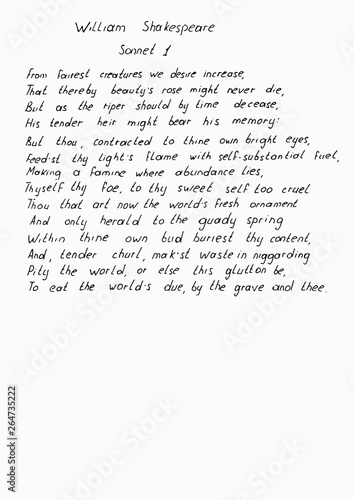 William Shakespeare
Sonnet 1
From fairest creatures we desire increase,
That thereby beauty's rose might never die,
But as the riper should by time decease,
His tender heir might bear his memory:
But thou, contracted to thine own bright eyes,
Feed'st thy light's flame with self-substantial fuel,
Making a famine where abundance lies,
Thyself thy foe, to thy sweet self too cruel
Thou that art now the world's fresh ornament
And only herald to the guady spring
Within thine own bud buriest thy content,
And, tender churl, mak'st waste in niggarding
Pity the world, or else this glutton be,
To eat the world's due, by the grave and thee.
Adobe Stock | #264735222